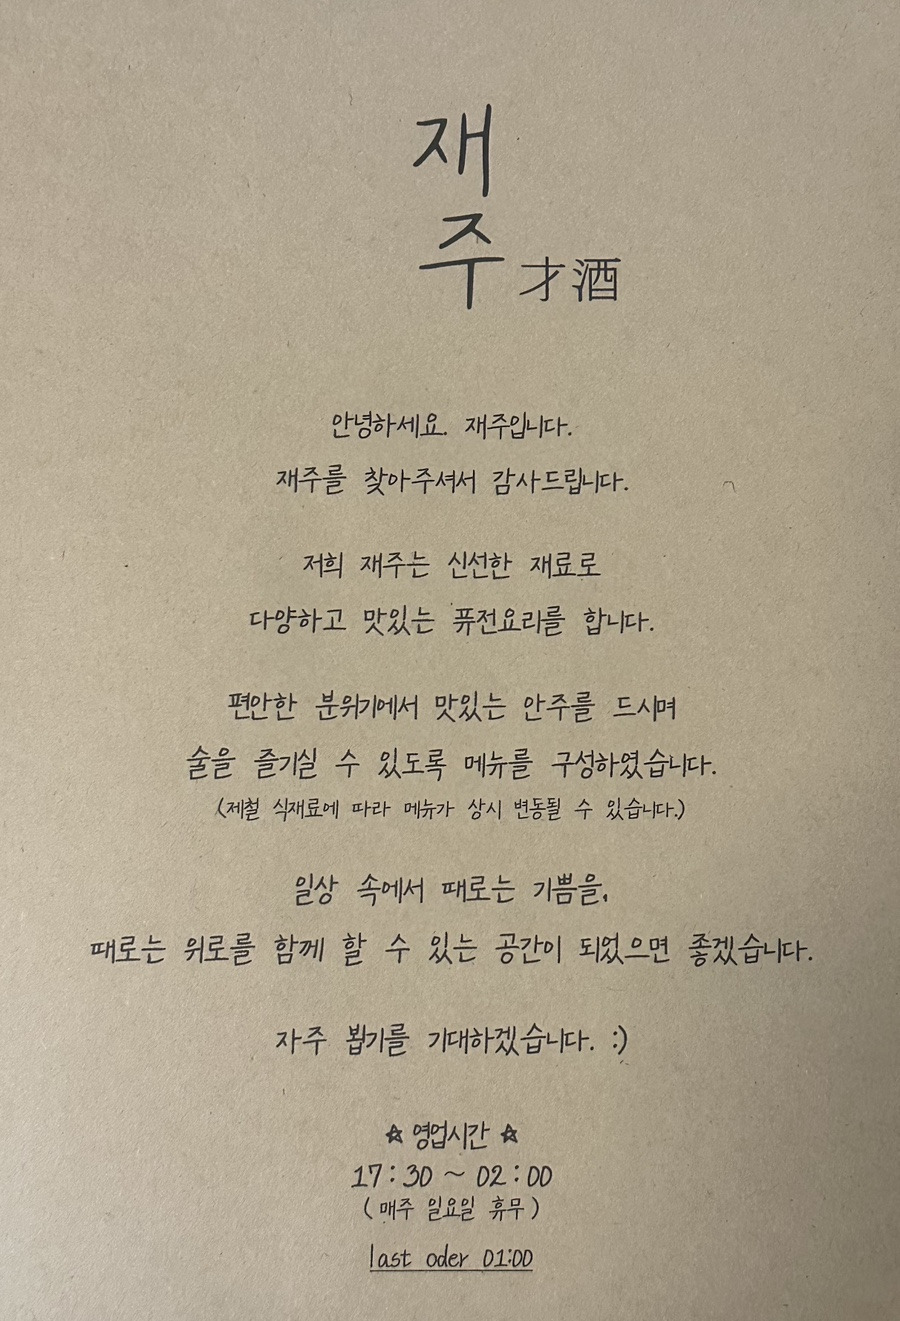 재
주 才酒
안녕하세요. 재주입니다.
재주를 찾아주셔서 감사드립니다.
저희 재주는 신선한 재료로
다양하고 맛있는 퓨전요리를 합니다.
편안한 분위기에서 맛있는 안주를 드시며
술을 즐기실 수 있도록 메뉴를 구성하였습니다.
(제철 식재료에 따라 메뉴가 상시 변동될 수 있습니다.)
일상 속에서 때로는 기쁨을,
때로는 위로를 함께 할 수 있는 공간이 되었으면 좋겠습니다.
자주 뵙기를 기대하겠습니다. :)
☆ 영업시간 ☆
17:30 ~ 02:00
(매주 일요일 휴무)
last oder 01:00